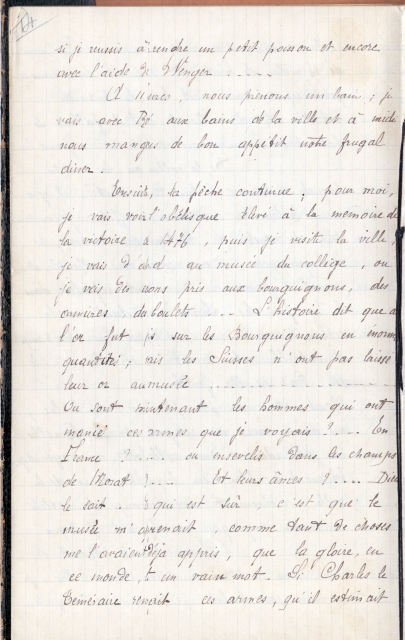 si je reussis à rendre un petit poisson et encore
avec l'aide d Wenger .....
A 11 ures, nous prenons un bain; j
vais avec Ré aux bains de la ville et à midi
nous manges de bon appétit notre frugal
diner.
Ensuit, la pêche continue; pour moi,
je vais voir l'obélisque élevé à la mémoire de
la victoire d 1476, puis je visite la ville,
je vais d'od au musée du collège, ou
je vois des nons pris aux bourguignons, des
armures, des boulets .... L'histoire dit que d
l'or fut is sur les Bourguignons en énorm
quantité; ais les Suisses n'ont pas laissé
leur or au musée ..........
Ou sont mintenant les hommes qui ont
manié ces armes que je voyais? .... En
France? .... ou ensevelis dans les champs
de Morat? .... Et leurs âmes? .... Dieu
le sait. qui est sûr, c'est que le
musée m'prenait, comme tant de choses
me l'avaient déja appris, que la gloire, en
ce monde, t un vain mot. Si Charles le
Téméraire renait ces armes, qu'il estimait